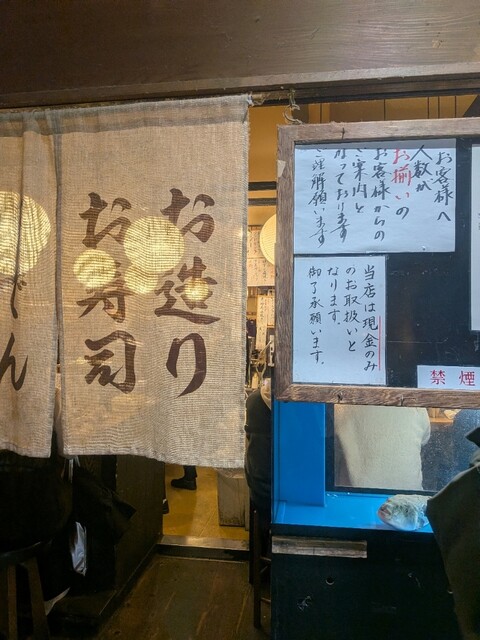 お造り
お寿司
どん
お客様へ
人数が
お揃いの
お客様からの
ご案内と
なっております
ご理解願います
当店は現金のみ
のお取扱いと
なります。
御了承願います。
禁煙